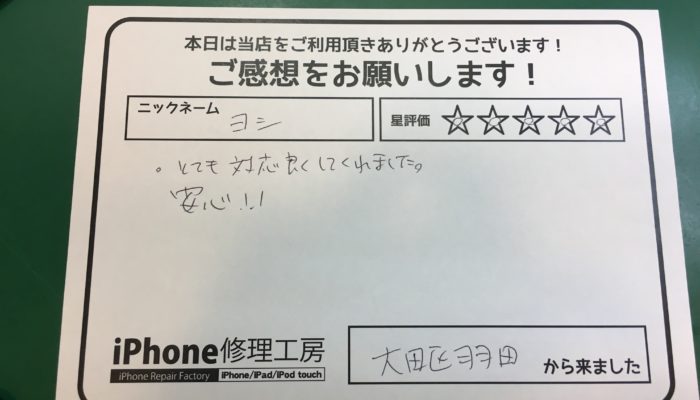 本日は当店をご利用頂きありがとうございます!
ご感想をお願いします!
ニックネーム ヨシ
星評価
。とても対応良くしてくれました。
安心!!!
iPhone修理工房
iPhone Repair Factory iPhone/iPad/iPod touch
大田区羽田 から来ました